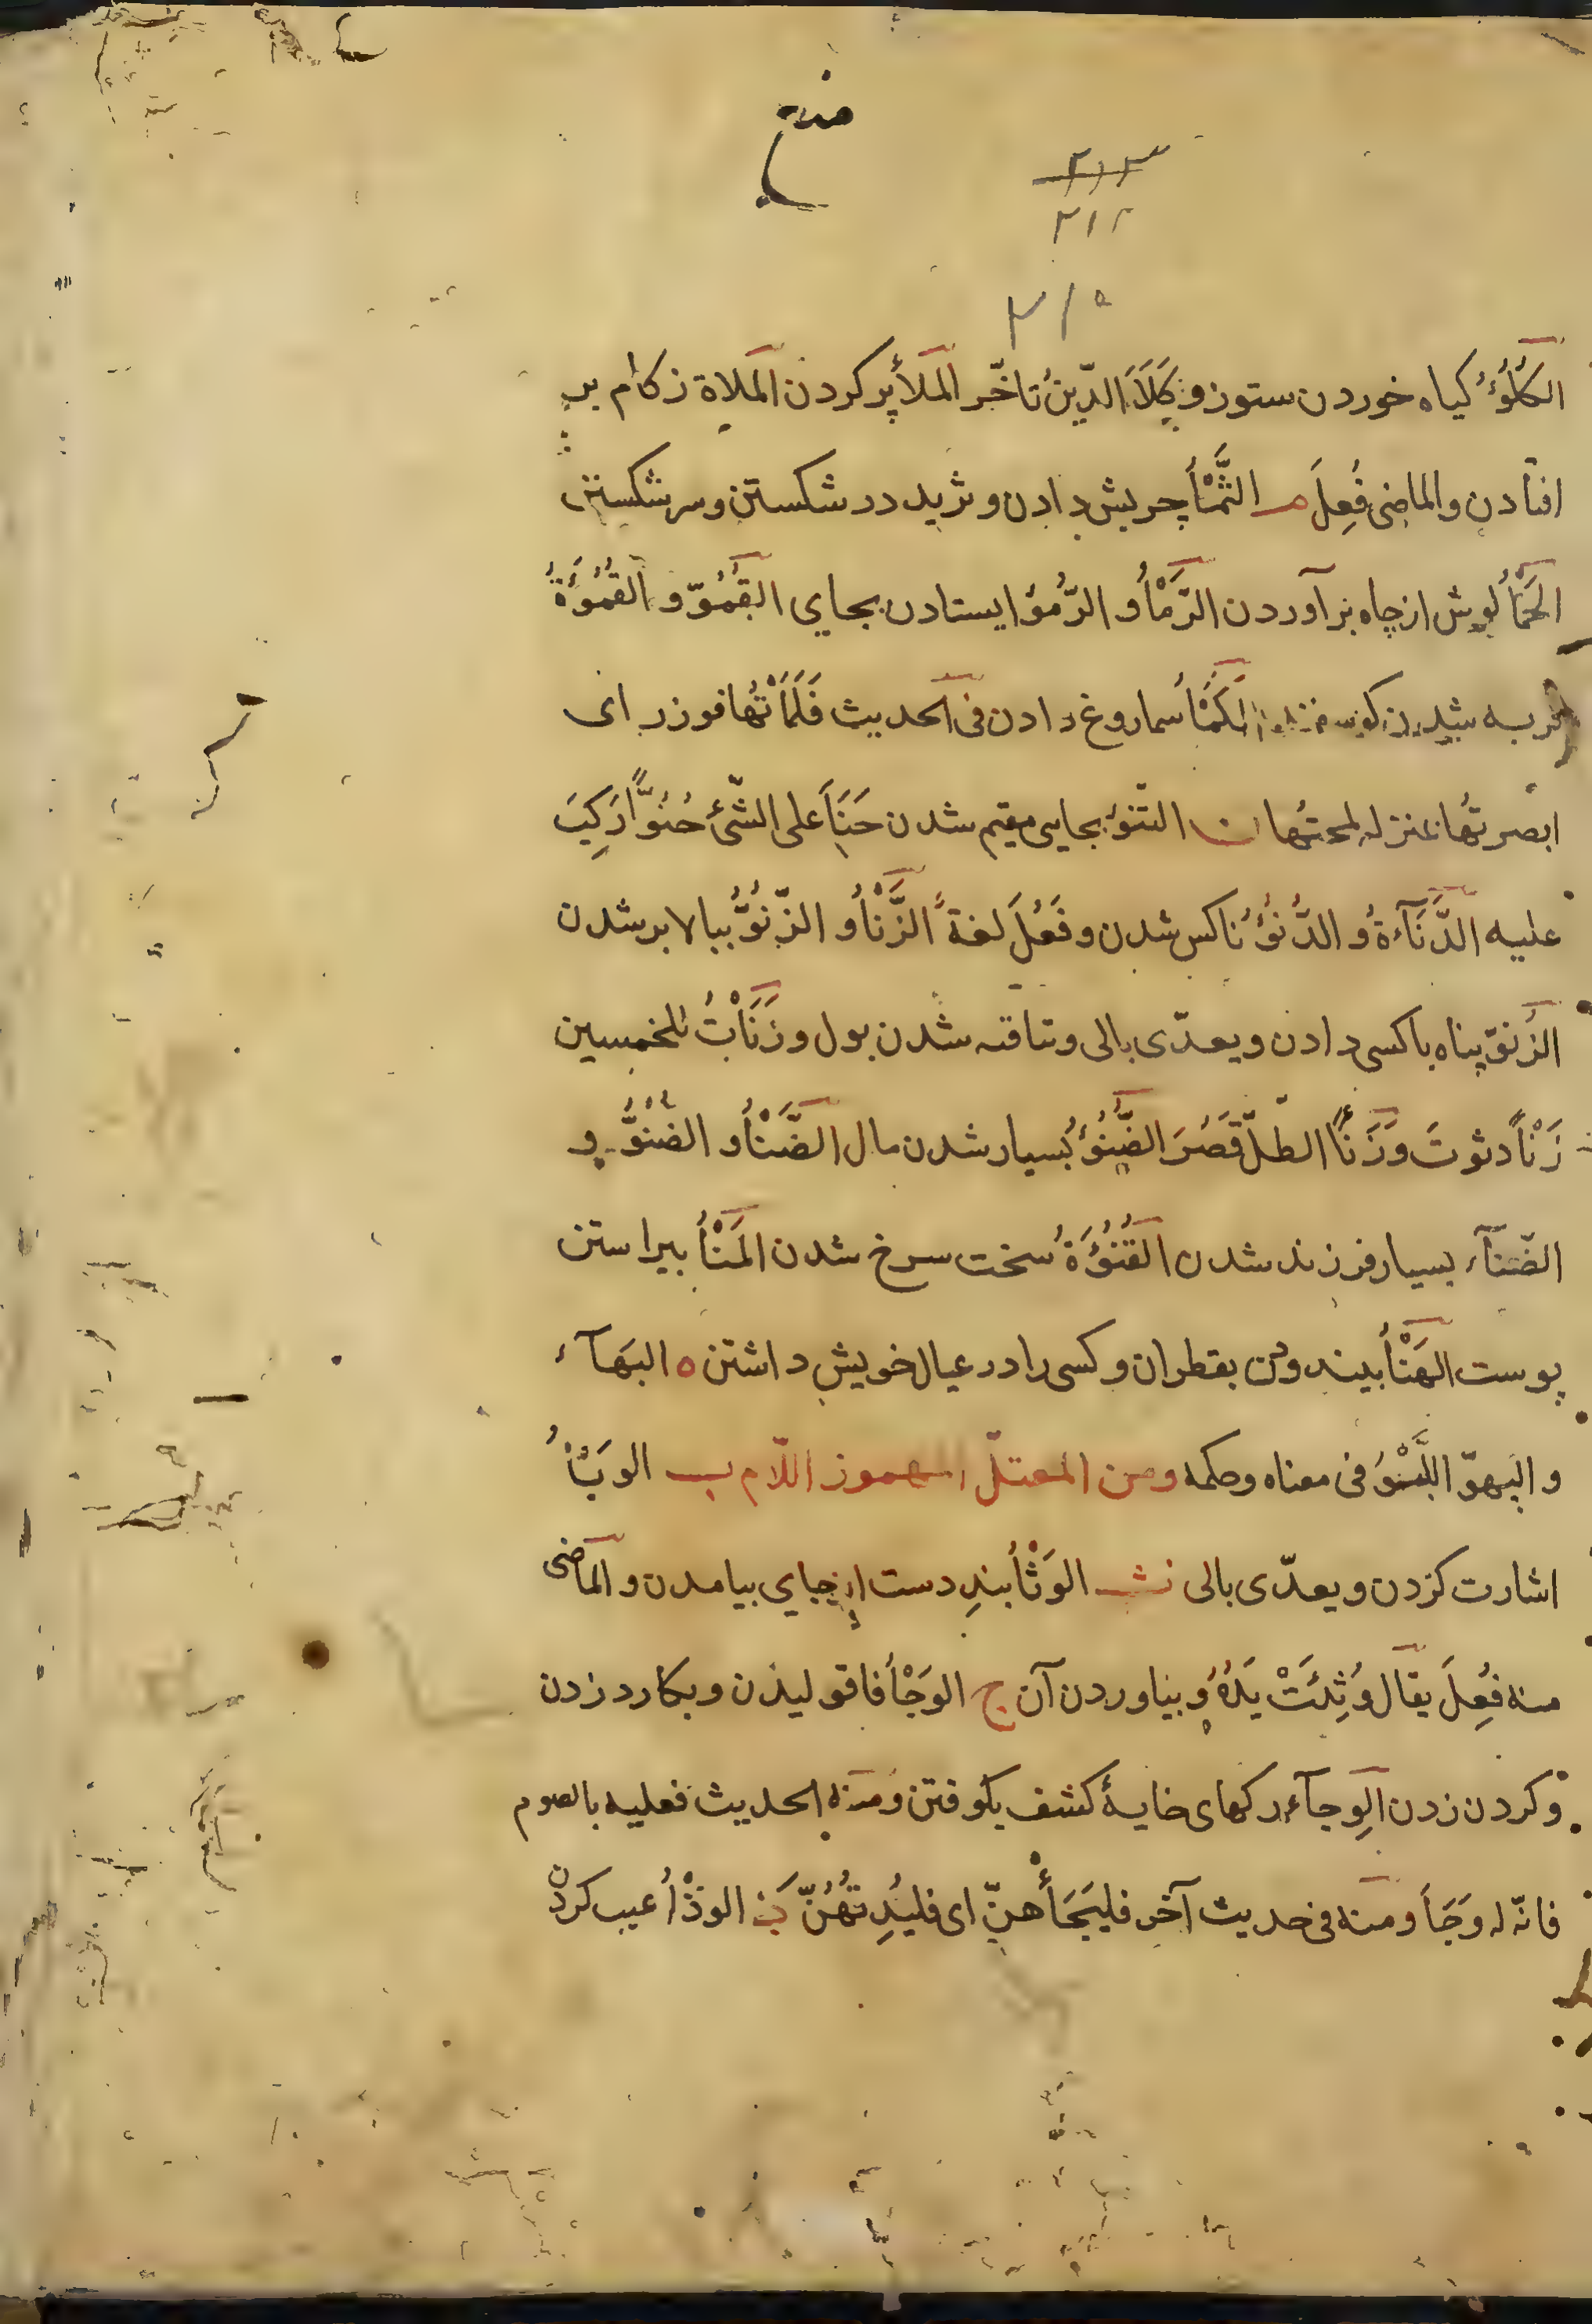 ۲۱۳
۲۱۲
۲۱۵
الكُلُوْءُ كیاه خوردن ستور و كَلَأَ الدّينُ تاخّر المَلأُ پر كردن المَلاة زكام بر
افتادن والماضی فُعِلَ م الثَّمْأُ چربش دادن و ثرید در شكستن و سر شكستن
الحَمْأُ لوش از چاه بر آوردن الرَّمْأُ و الرُّمؤ ایستادن بجای القُمُوّ و القُمُؤَةُ
فربه شدن الكَمْأُ سماروغ دادن فی الحدیث فَلَمَأْتُها فوز رای
ابصرتُها بمنزله لمحتُها ن التنؤ بجایی مقیم شدن حَنَأَ علی الشّیٔ حُنُوًّا رَكِبَ
علیه الدَّنَآءَةُ و الدُّنُؤُ ناكس شدن و فَعُلَ لغةً الزَّنْأُ و الزُّنُوُّ ببالا بر شدن
الزُنوّ پناه باكسی دادن و یعدّی بالی و تافته شدن بول و زَنَأْتُ للخمسین
زَنْأً دنوتَ وَ زَنَأَ الظلّ قَصُرَ الضُّنُؤُ بسیار شدن مال الضَّنْأُ و الضُنُوُّ و
الضّنآء بسیار فرزند شدن القُنُؤَةُ سخت سرخ شدن المَنْأُ بیراستن
پوست الهَنْأُ بیندودن بقطران و كسی را در عیال خویش داشتن ه البَهآء
و البهوّ البَسْوُ فی معناه وحكمه ومن المعتلّ المهموز اللّام ب الوَبْأُ
اشارت كردن و یعدّی بالی ث الوَثْأُ بندِ دست از جای بیامدن و الماضی
منه فُعِلَ یقال وُثِئَتْ یَدُهُ و بیاوردن آن ج الوَجْأُ فاقولیذن و بكارد زدن
و كردن زدن الوِجآء ركهای خایهٔ كشف بكوفتن ومنه الحدیث فعلیه بالصوم
فانّه له وَجَأَ ومنه فی حدیث آخر فلیَجَأْهنّ ای فلیُدِ تُهُنّ ذ الوَذْأُ عیب كردن